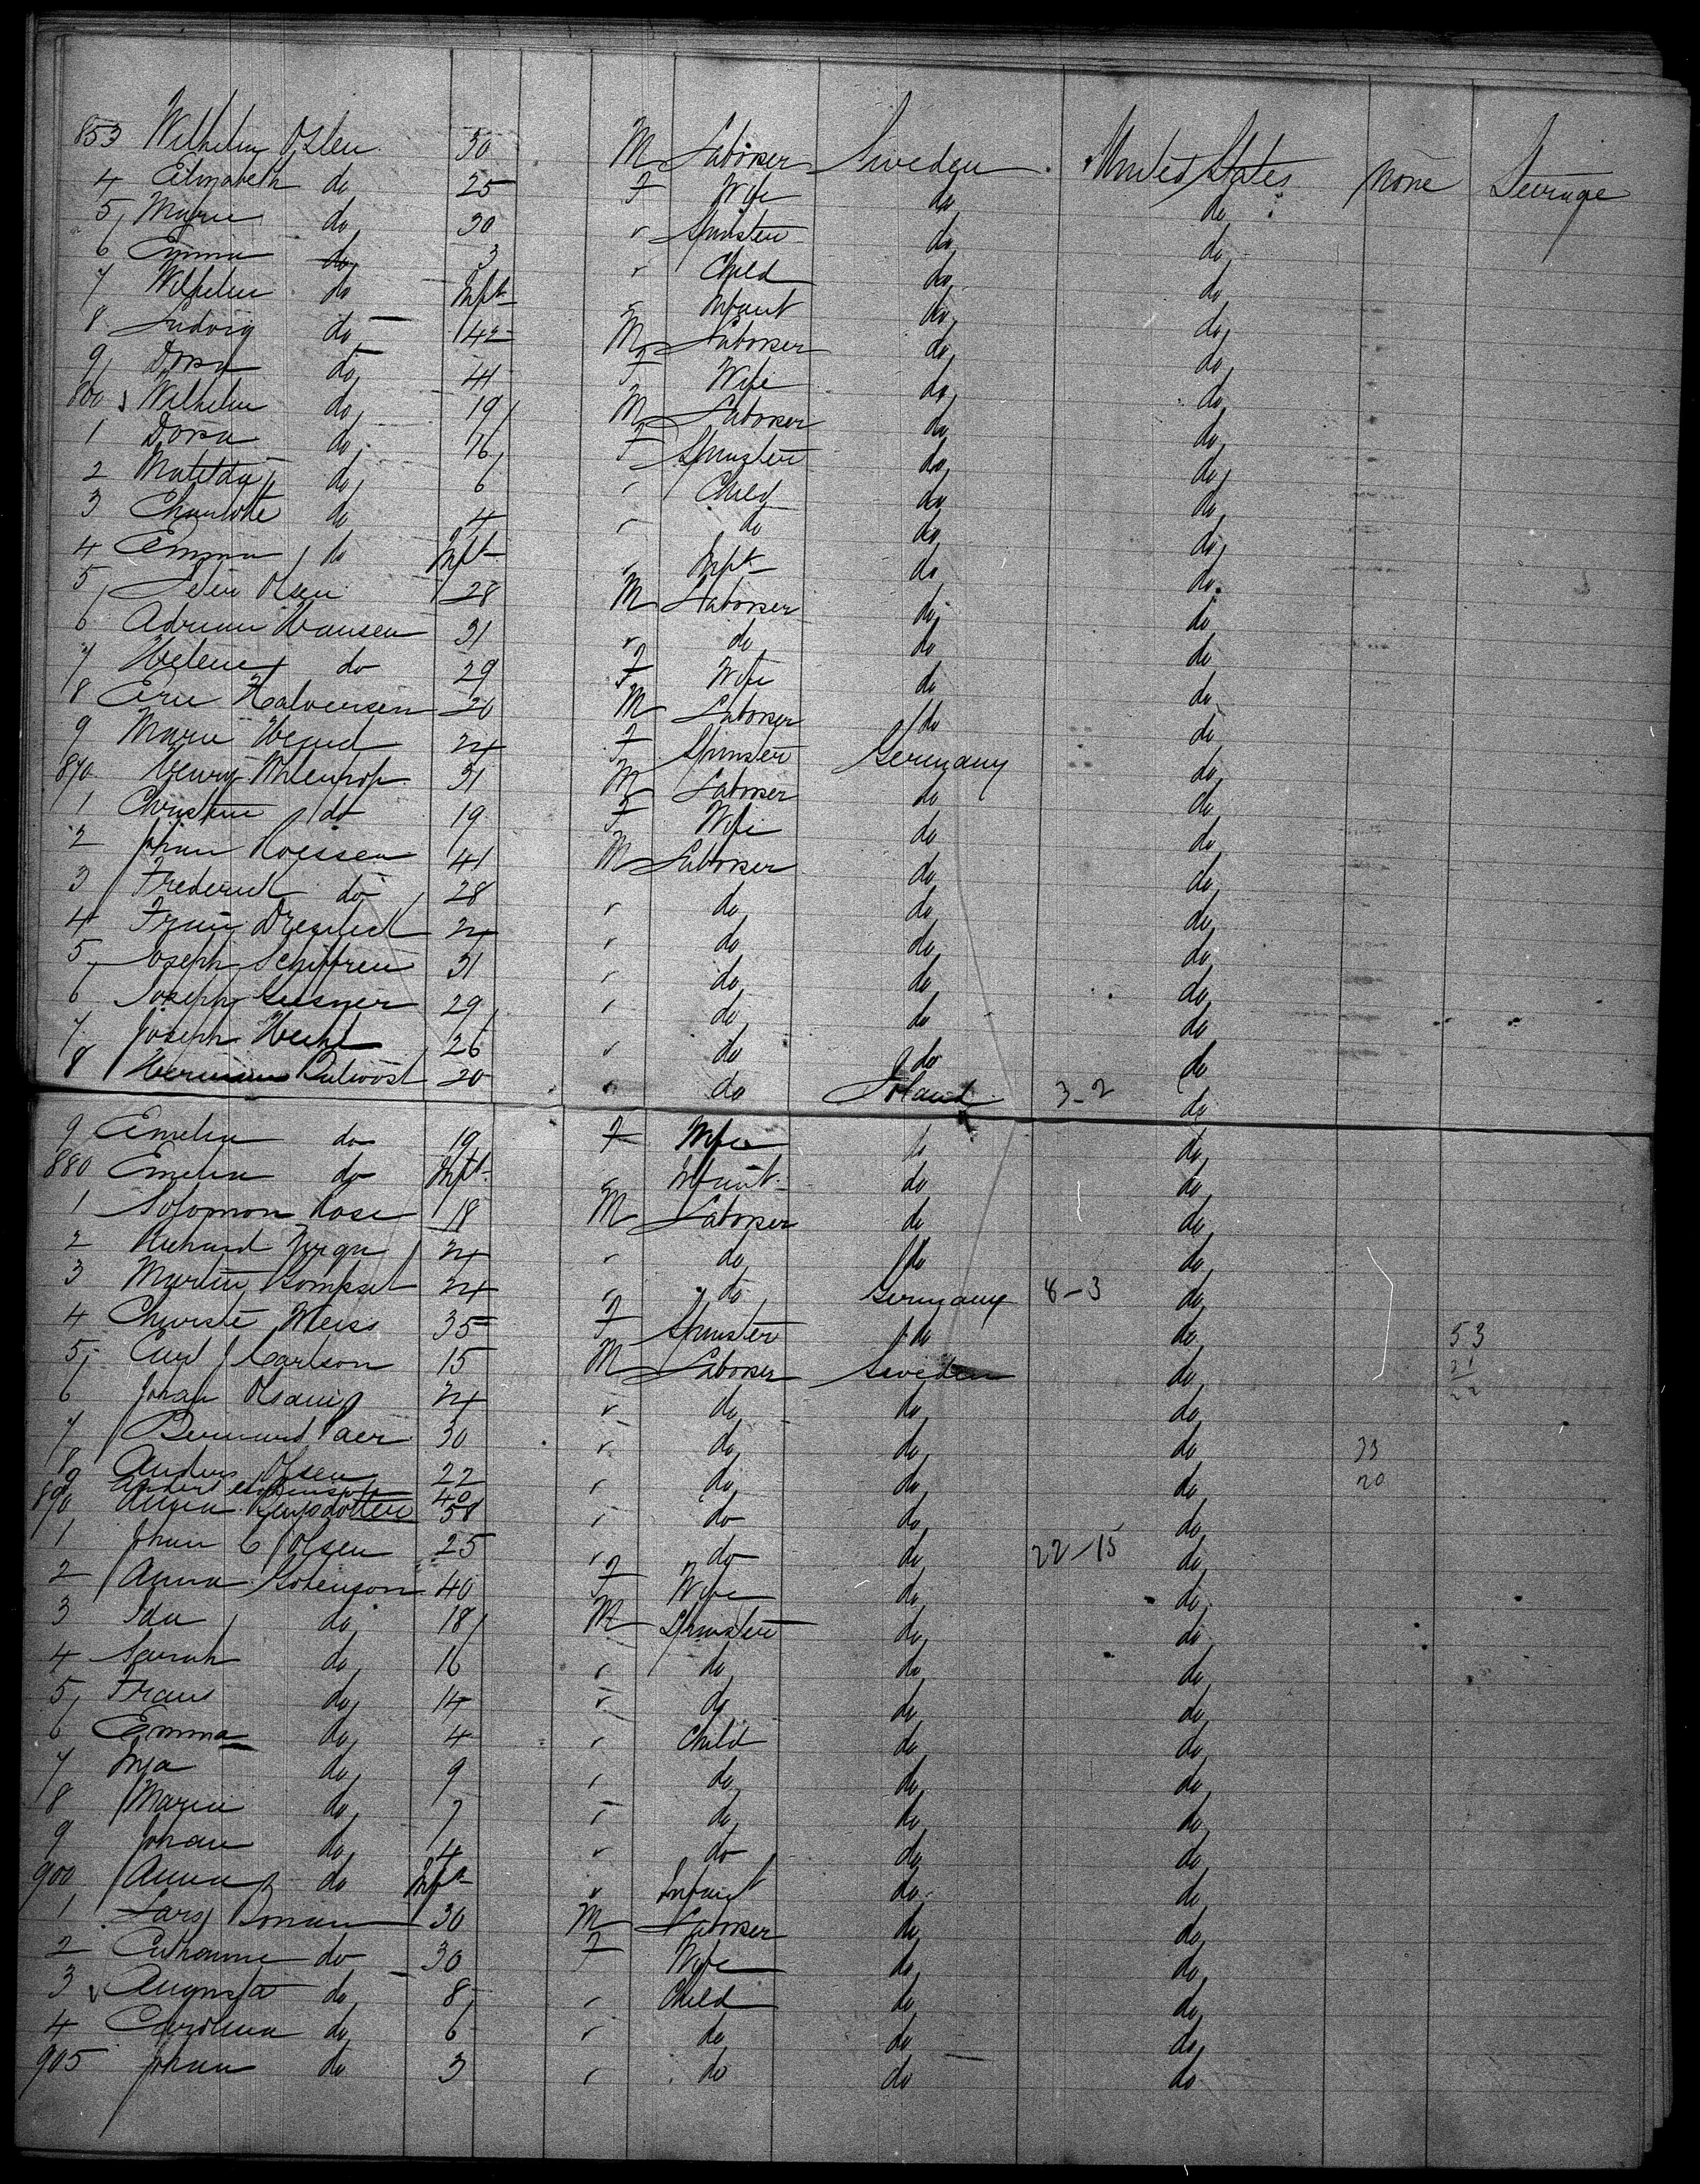 853 Wilhelm Osten 30 M Laborer Sweden United States none Steerage
4 Elizabeth do 25 F Wife do do
5 Marie do 30 " Spinster do do
6 Emma do 3 " Child do do
7 Wilhelm do Inft " Infant do do
8 Ludvig do 42 M Laborer do do
9 Dora do 41 F Wife do do
860 Wilhelm do 19 M Laborer do do
1 Dora do 16 F Spinster do do
2 Matilda do 6 " Child do do
3 Charlotte do 4 " do do do
4 Emma do Inft " Inft do do
5 Peter Olsen 28 M Laborer do do
6 Adrian Hansen 31 " do do do
7 Helene do 29 F Wife do do
8 Eric Halvensen 20 M Laborer do do
9 Marie 24 F Spinster Germany do
870 Henry 31 M Laborer do do
1 Christine do 19 F Wife do do
2 Johan 41 M Laborer do do
3 Frederick do 28 " do do do
4 Franz 24 " do do do
5 Joseph Schiffren 31 " do do do
6 Joseph 29 " do do do
7 Joseph Hecht 26 " do do do
8 Herman 20 " do Poland 3-2 do
9 Emelia do 19 F Wife do do
880 Emelia do Inft " Infant do do
1 Solomon Rose 18 M Laborer do do
2 Richard 24 " do do do
3 Martin 24 " do Germany 8-3 do
4 Weiss 35 F Spinster do do 53
5 Carl J Carlson 15 M Laborer Sweden do 21
6 Johan 24 " do do do 22
7 Bernard 30 " do do do 33
8 Anders Olsen 22 " do do do 20
9 40
890 Anna 58 " do do do
1 Johan C Olsen 25 " do do 22-15 do
2 Anna Sorenson 40 F Wife do do
3 Ida do 18 M Spinster do do
4 Sarah do 16 " do do do
5 Frans do 14 " do do do
6 Emma do 4 " Child do do
7 do 9 " do do do
8 Maria do 7 " do do do
9 Johan do 4 " do do do
900 Anna do Inft " Infant do do
1 Lars 30 M Laborer do do
2 do 30 F Wife do do
3 Augusta do 8 " Child do do
4 Carolina do 6 " do do do
905 Johan do 3 " do do do